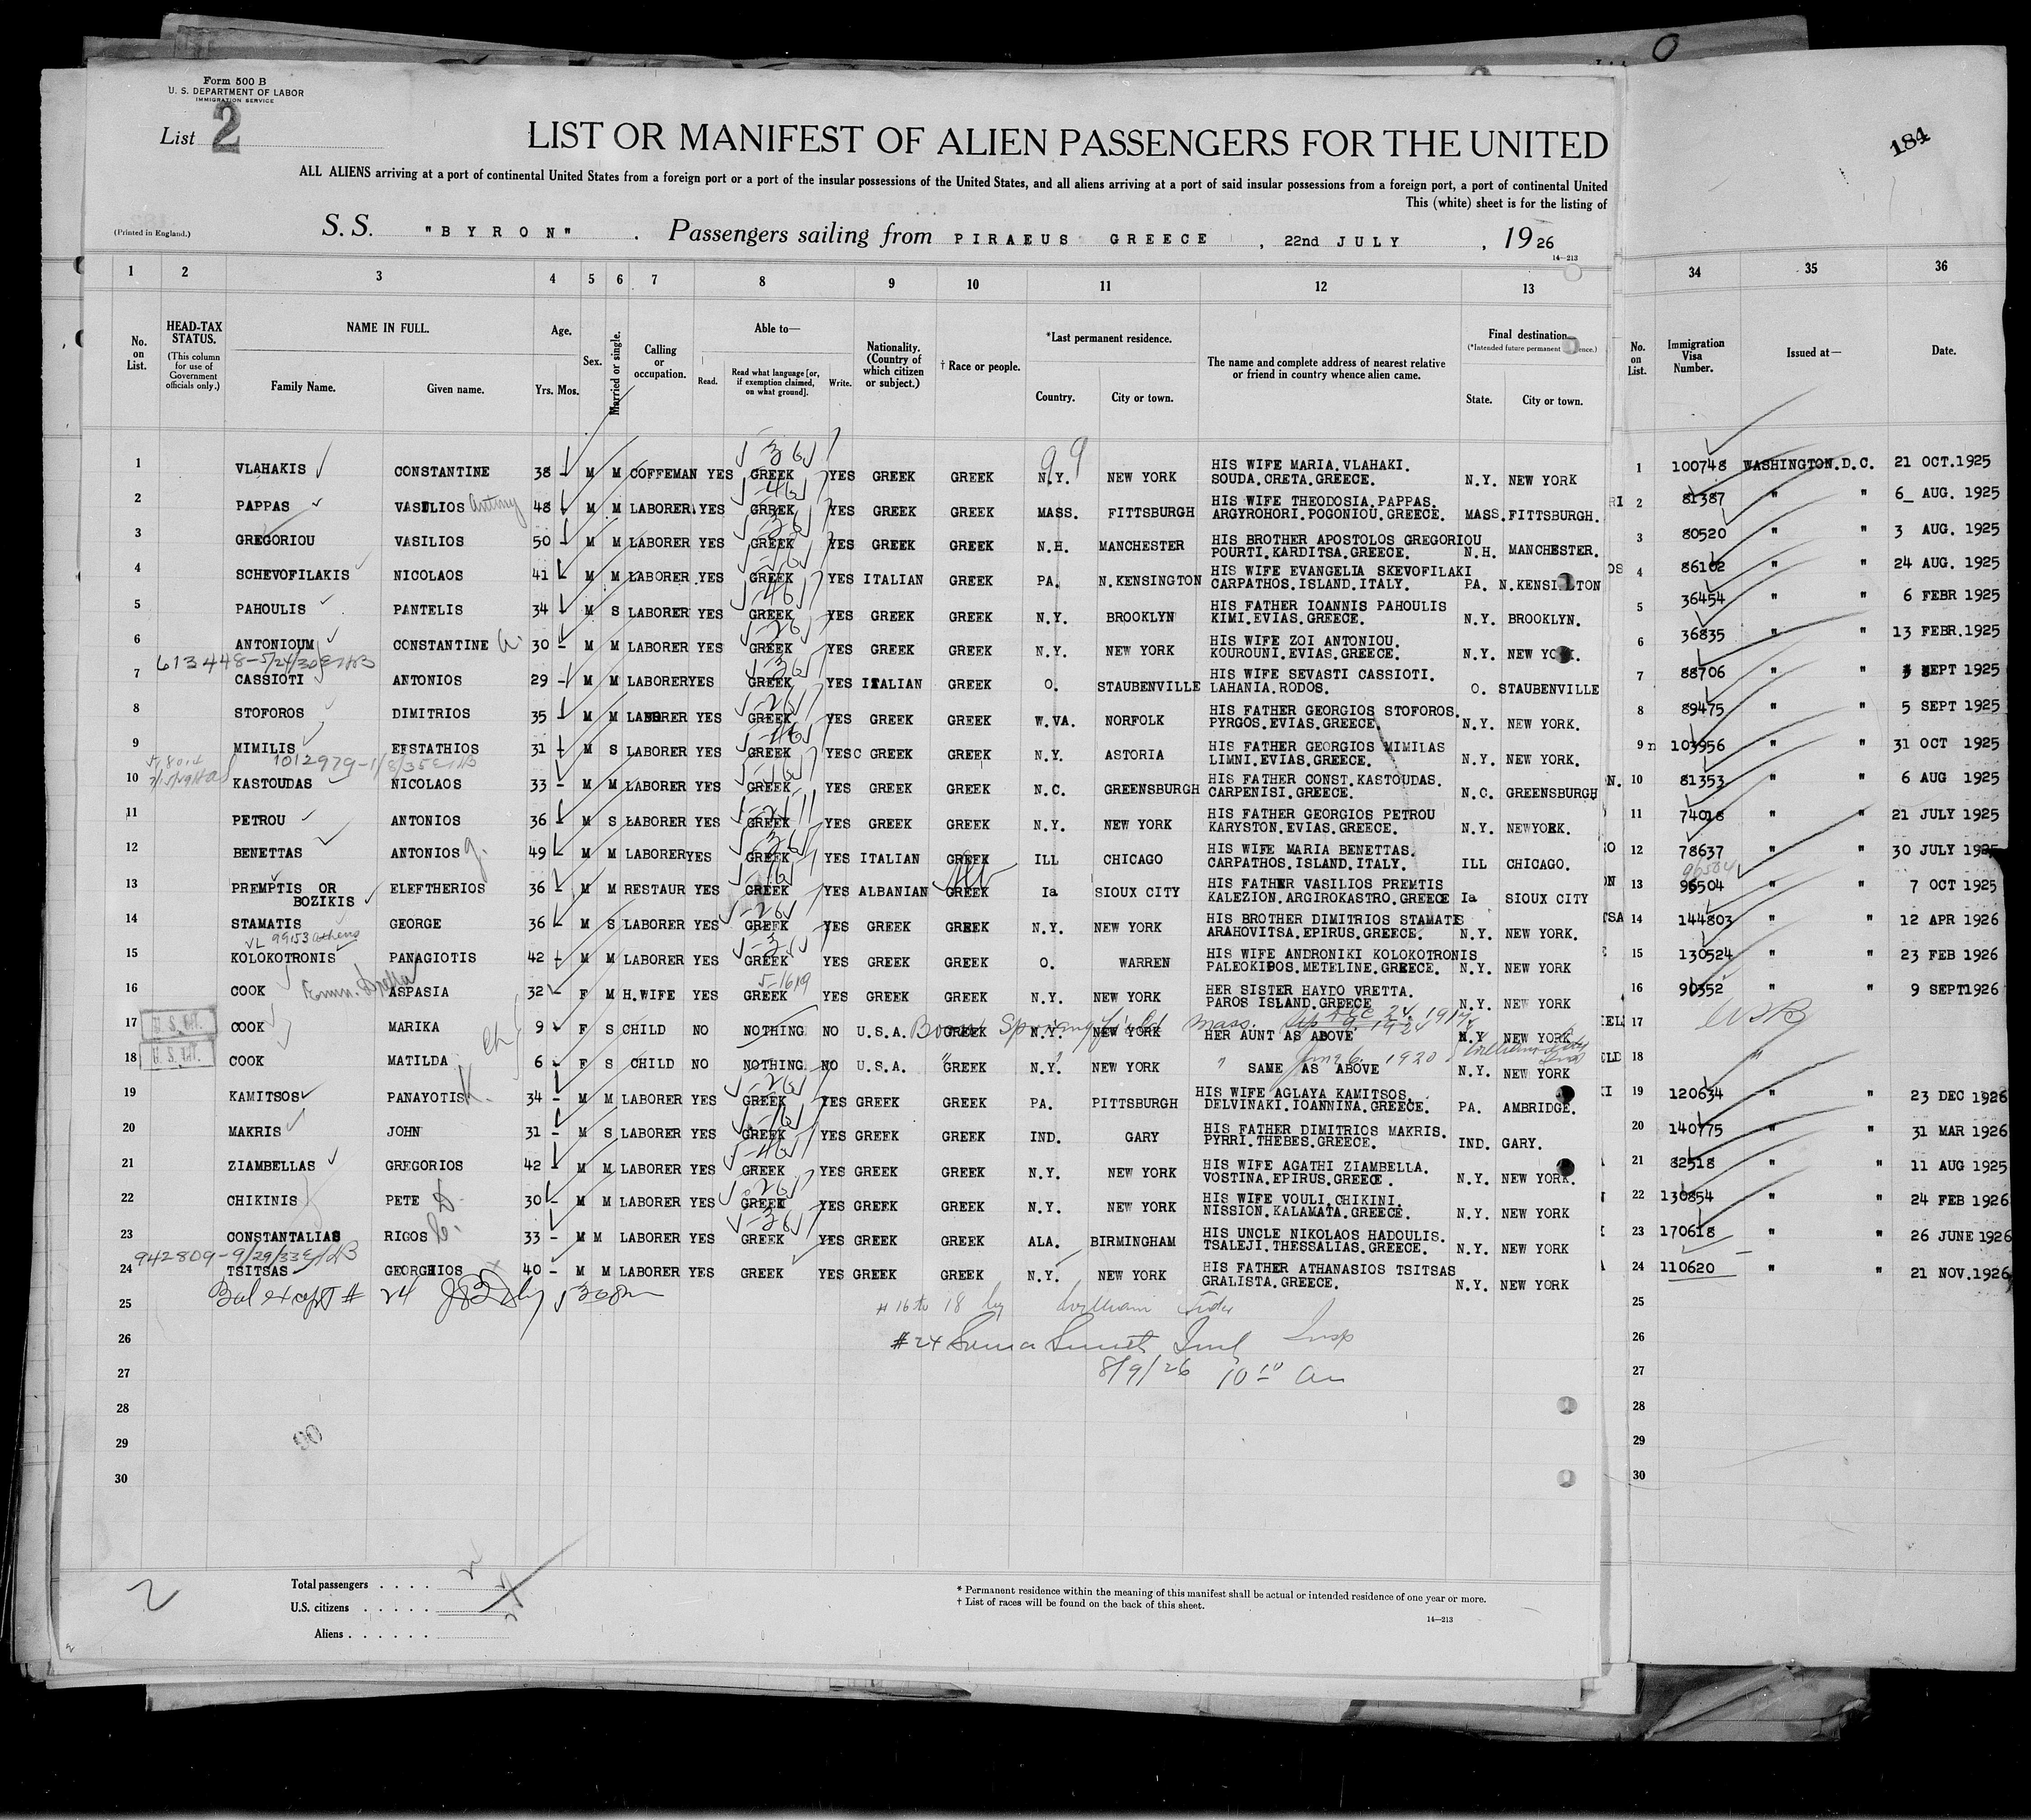 Form 500 B
U. S. DEPARTMENT OF LABOR
IMMIGRATION SERVICE
List 2
LIST OR MANIFEST OF ALIEN PASSENGERS FOR THE UNITED
184
ALL ALIENS arriving at a port of continental United States from a foreign port or a port of the insular possessions of the United States, and all aliens arriving at a port of said insular possessions from a foreign port, a port of continental United
This (white) sheet is for the listing of
(Printed in England.)
S. S. "BYRON" . Passengers sailing from PIRAEUS GREECE , 22nd JULY , 1926
14—213
1 2 3 4 5 6 7 8 9 10 11 12 13 34 35 36
No. on List.
HEAD-TAX STATUS.
(This column for use of Government officials only.)
NAME IN FULL.
Family Name. Given name.
Age.
Yrs. Mos.
Sex.
Married or single.
Calling or occupation.
Able to—
Read. Read what language [or, if exemption claimed, on what ground]. Write.
Nationality. (Country of which citizen or subject.)
† Race or people.
*Last permanent residence.
Country. City or town.
The name and complete address of nearest relative or friend in country whence alien came.
Final destination
(*Intended future permanent ence.)
State. City or town.
No. on List.
Immigration Visa Number.
Issued at—
Date.
99
1 VLAHAKIS CONSTANTINE 38 - M M COFFEMAN YES GREEK YES GREEK GREEK N.Y. NEW YORK HIS WIFE MARIA.VLAHAKI. SOUDA.CRETA.GREECE. N.Y. NEW YORK 1 100748 WASHINGTON.D.C. 21 OCT.1925
2 PAPPAS VASILIOS 48 M M LABORER.YES GREEK YES GREEK GREEK MASS. FITTSBURGH HIS WIFE THEODOSIA.PAPPAS. ARGYROHORI.POGONIOU.GREECE. MASS.FITTSBURGH. 2 81387 " " 6_ AUG. 1925
3 GREGORIOU VASILIOS 50 - M M LABORER YES GREEK YES GREEK GREEK N.H. MANCHESTER HIS BROTHER APOSTOLOS GREGORIOU POURTI.KARDITSA.GREECE. N.H. MANCHESTER. 3 80520 " " 3 AUG. 1925
4 SCHEVOFILAKIS NICOLAOS 41 M M LABORER YES GREEK YES ITALIAN GREEK PA. N.KENSINGTON HIS WIFE EVANGELIA SKEVOFILAKI CARPATHOS.ISLAND.ITALY. PA. N.KENSI TON 4 86102 " " 24 AUG. 1925
5 PAHOULIS PANTELIS 34 M S LABORER YES GREEK YES GREEK GREEK N.Y. BROOKLYN HIS FATHER IOANNIS PAHOULIS KIMI.EVIAS.GREECE. N.Y. BROOKLYN. 5 36454 " " 6 FEBR 1925
6 ANTONIOUM CONSTANTINE 30 - M M LABORER YES GREEK YES GREEK GREEK N.Y. NEW YORK HIS WIFE ZOI ANTONIOU. KOUROUNI.EVIAS.GREECE. N.Y. NEW YO . 6 36835 " " 13 FEBR.1925
613448-5/24/30
7 CASSIOTI ANTONIOS 29 - M M LABORERYES GREEK YES ITALIAN GREEK O. STAUBENVILLE HIS WIFE SEVASTI CASSIOTI. LAHANIA.RODOS. O. STAUBENVILLE 7 88706 " " SEPT 1925
8 STOFOROS DIMITRIOS 35 M M LABORER YES GREEK YES GREEK GREEK W.VA. NORFOLK HIS FATHER GEORGIOS STOFOROS. PYRGOS.EVIAS.GREECE. N.Y. NEW YORK. 8 89475 " " 5 SEPT 1925
9 MIMILIS EFSTATHIOS 31 M S LABORER YES GREEK YESC GREEK GREEK N.Y. ASTORIA HIS FATHER GEORGIOS MIMILAS LIMNI.EVIAS.GREECE. N.Y. NEW YORK. 9 103956 " " 31 OCT 1925
1012979-1/8/35
10 KASTOUDAS NICOLAOS 33 - M M LABORER YES GREEK YES GREEK GREEK N.C. GREENSBURGH HIS FATHER CONST.KASTOUDAS. CARPENISI.GREECE. N.C. GREENSBURGH 10 81353 " " 6 AUG 1925
11 PETROU ANTONIOS 36 M S LABORER YES GREEK YES GREEK GREEK N.Y. NEW YORK HIS FATHER GEORGIOS PETROU KARYSTON.EVIAS.GREECE. N.Y. NEWYORK. 11 74018 " " 21 JULY 1925
12 BENETTAS ANTONIOS 49 M M LABORERYES GREEK YES ITALIAN GREEK ILL CHICAGO HIS WIFE MARIA BENETTAS. CARPATHOS.ISLAND.ITALY. ILL CHICAGO. 12 78637 " " 30 JULY 1925
96504
13 PREMPTIS OR BOZIKIS ELEFTHERIOS 36 - M M RESTAUR YES GREEK YES ALBANIAN GREEK Ia SIOUX CITY HIS FATHER VASILIOS PREMTIS KALEZION.ARGIROKASTRO.GREECE Ia SIOUX CITY 13 96504 " " 7 OCT 1925
14 STAMATIS GEORGE 36 M S LABORER YES GREEK YES GREEK GREEK N.Y. NEW YORK HIS BROTHER DIMITRIOS STAMATIS ARAHOVITSA.EPIRUS.GREECE. N.Y. NEW YORK. 14 144803 " " 12 APR 1926
VL 99153 Athens
15 KOLOKOTRONIS PANAGIOTIS 42 M M LABORER YES GREEK YES GREEK GREEK O. WARREN HIS WIFE ANDRONIKI KOLOKOTRONIS PALEOKIPOS.METELINE.GREECE. N.Y. NEW YORK 15 130524 " " 23 FEB 1926
16 COOK ASPASIA 32 F M H.WIFE YES GREEK YES GREEK GREEK N.Y. NEW YORK HER SISTER HAYDO VRETTA. PAROS ISLAND.GREECE N.Y. NEW YORK 16 90352 " " 9 SEPT1926
Born Springfield Mass. Dec 24. 1917
17 COOK MARIKA 9 - F S CHILD NO NOTHING NO U.S.A. GREEK N.Y. NEW YORK HER AUNT AS ABOVE N.Y NEW YORK 17
June 6. 1920
18 COOK MATILDA 6 - F S CHILD NO NOTHING NO U.S.A. GREEK N.Y. NEW YORK " SAME AS ABOVE N.Y. NEW YORK 18 "
19 KAMITSOS PANAYOTIS 34 - M M LABORER YES GREEK YES GREEK GREEK PA. PITTSBURGH HIS WIFE AGLAYA KAMITSOS. DELVINAKI.IOANNINA.GREECE. PA. AMBRIDGE. 19 120634 " " 23 DEC 1926
20 MAKRIS JOHN 31 - M S LABORER YES GREEK YES GREEK GREEK IND. GARY HIS FATHER DIMITRIOS MAKRIS. PYRRI.THEBES.GREECE. IND. GARY. 20 140775 " " 31 MAR 1926
21 ZIAMBELLAS GREGORIOS 42 - M M LABORER YES GREEK YES GREEK GREEK N.Y. NEW YORK HIS WIFE AGATHI ZIAMBELLA. VOSTINA.EPIRUS.GREECE . N.Y. NEW YORK. 21 82518 " " 11 AUG 1925
22 CHIKINIS PETE 30 - M M LABORER YES GREEK YES GREEK GREEK N.Y. NEW YORK HIS WIFE VOULI CHIKINI. NISSION.KALAMATA.GREECE. N.Y. NEW YORK 22 130854 " " 24 FEB 1926
23 CONSTANTALIAS RIGOS 33 - M M LABORER YES GREEK YES GREEK GREEK ALA. BIRMINGHAM HIS UNCLE NIKOLAOS HADOULIS. TSALEJI.THESSALIAS.GREECE. N.Y. NEW YORK 23 170618 " " 26 JUNE 1926
942809-9/29/33
24 TSITSAS GEORGHIOS 40 - M M LABORER YES GREEK YES GREEK GREEK N.Y. NEW YORK HIS FATHER ATHANASIOS TSITSAS GRALISTA.GREECE. N.Y. NEW YORK 24 110620 " " 21 NOV.1926
Bal except # 24
25 # 16 to 18 by William 25
26 # 24 Insp 26
27 8/9/26 10 10 am 27
28 28
29 29
30 30
Total passengers . . . .
U.S. citizens . . . . .
Aliens . . . . . .
2
* Permanent residence within the meaning of this manifest shall be actual or intended residence of one year or more.
† List of races will be found on the back of this sheet.
14—213